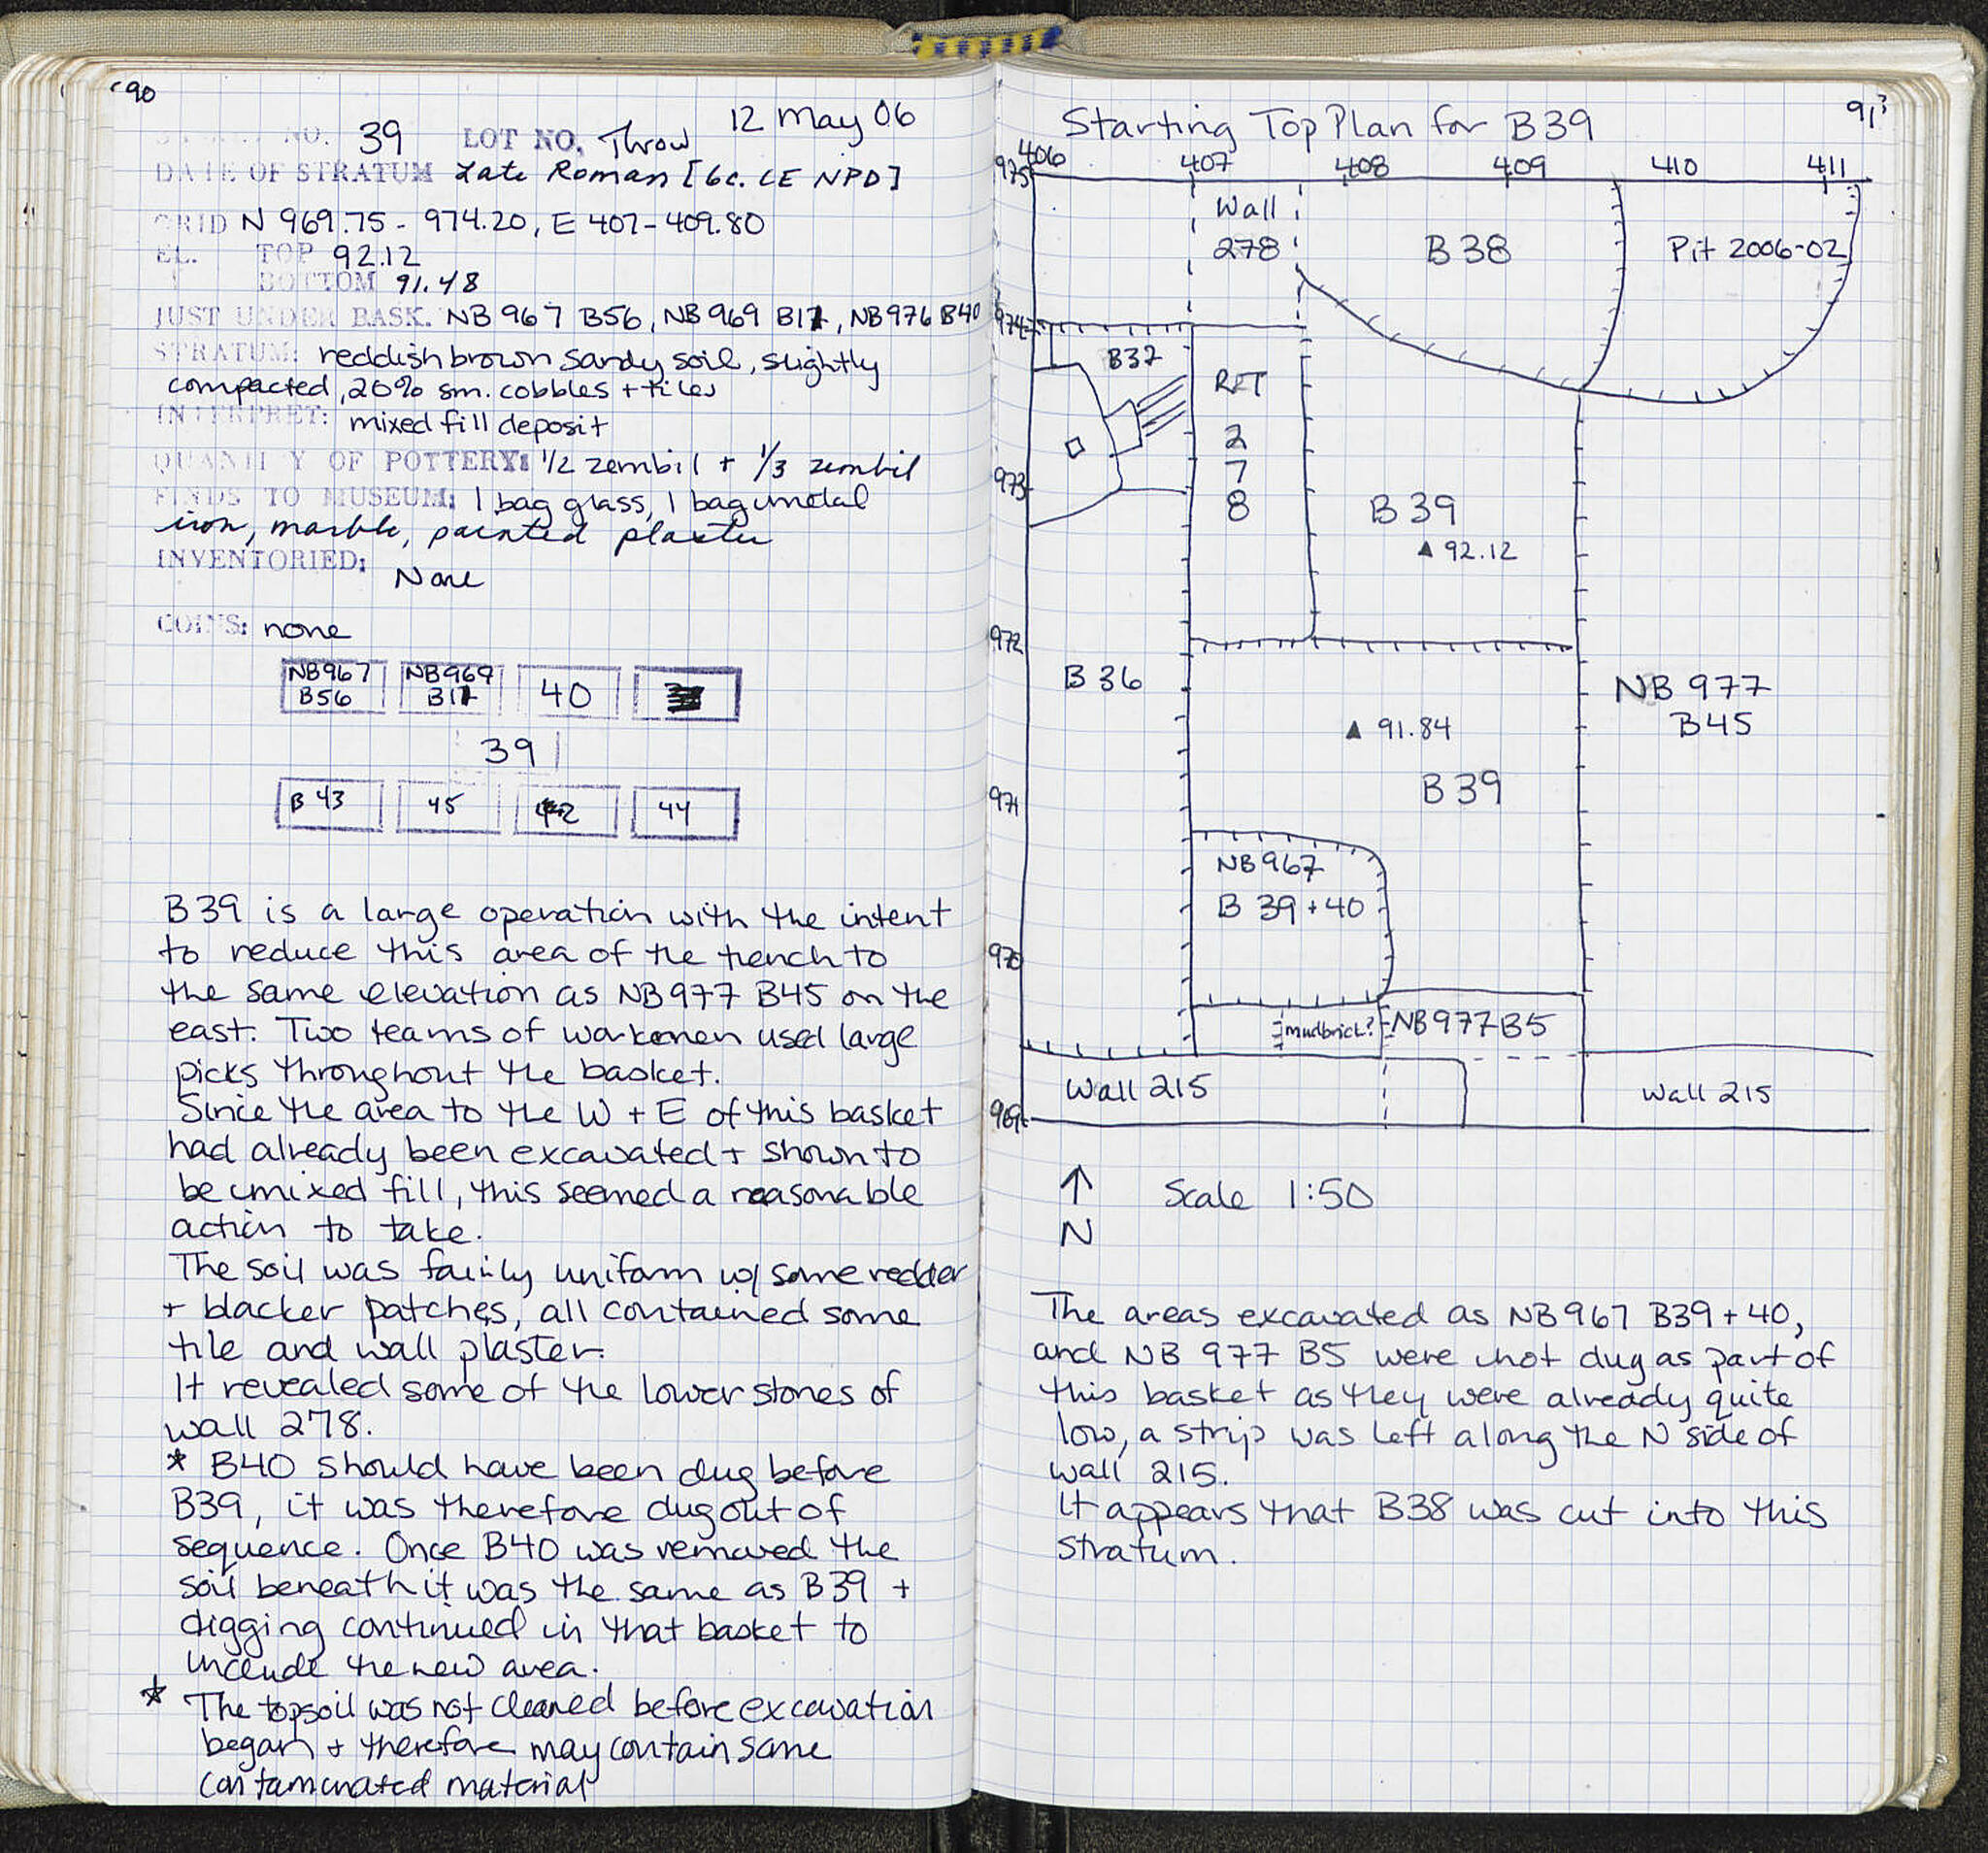 90
12 May 06
NO. 39 LOT NO. Throw
DATE OF STRATUM Late Roman [6c. CE NPD]
GRID N 969.75 - 974.20, E 407-409.80
EL. TOP 92.12
BOTTOM 91.48
JUST UNDER BASK. NB 967 B56, NB 969 B17, NB976 B40
STRATUM: reddish brown sandy soil, slightly
compacted, 20% sm. cobbles + tiles
INTERPRET: mixed fill deposit
QUANTITY OF POTTERY: 1/2 zembil + 1/3 zembil
FINDS TO MUSEUM: 1 bag glass, 1 bag metal
iron, marble, painted plaster
INVENTORIED: None
COINS: none
NB967 B56
NB969 B17
40
39
B 43
45
42
44
B39 is a large operation with the intent
to reduce this area of the trench to
the same elevation as NB977 B45 on the
east. Two teams of workmen used large
picks throughout the basket.
Since the area to the W + E of this basket
had already been excavated + shown to
be mixed fill, this seemed a reasonable
action to take.
The soil was fairly uniform w/ some redder
+ blacker patches, all contained some
tile and wall plaster.
It revealed some of the lower stones of
wall 278.
* B40 should have been dug before
B39, it was therefore dug out of
sequence. Once B40 was removed the
soil beneath it was the same as B39 +
digging continued in that basket to
include the new area.
* The topsoil was not cleaned before excavation
began + therefore may contain some
contaminated material
91
Starting Top Plan for B39
406 407 408 409 410 411
975
Wall
278
B 38
Pit 2006-02
974
B37
RFT
2
7
8
973
B 39
▲ 92.12
972
B 36
NB 977
B45
▲ 91.84
B39
971
NB967
B 39+40
970
mudbrick?
NB977 B5
Wall 215
Wall 215
969
↑
N
Scale 1:50
The areas excavated as NB967 B39+40,
and NB 977 B5 were not dug as part of
this basket as they were already quite
low, a strip was left along the N side of
wall 215.
It appears that B38 was cut into this
stratum.